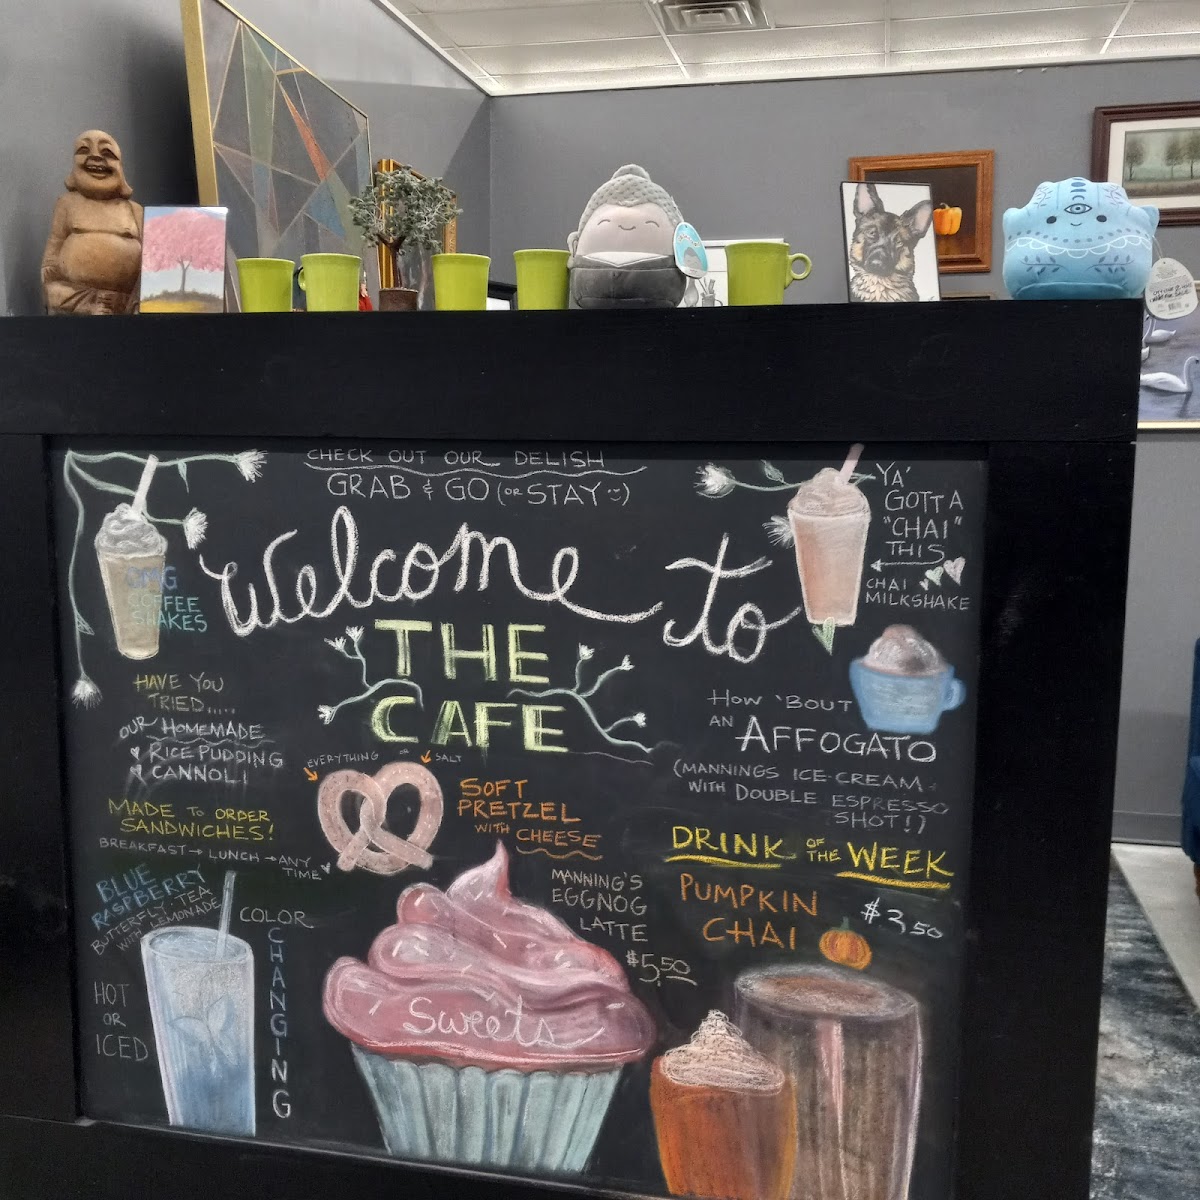 CHECK OUT OUR DELISH
GRAB & GO (OR STAY :))
Welcome to
THE
CAFE
OMG
COFFEE
SHAKES
YA'
GOTTA
"CHAI"
THIS
CHAI
MILKSHAKE
HAVE YOU
TRIED.....
OUR HOMEMADE
RICE PUDDING
CANNOLI
MADE TO ORDER
SANDWICHES!
BREAKFAST → LUNCH → ANY
TIME
EVERYTHING OR SALT
SOFT
PRETZEL
WITH CHEESE
HOW 'BOUT
AN AFFOGATO
(MANNINGS ICE-CREAM
WITH DOUBLE ESPRESSO
SHOT!)
DRINK OF THE WEEK
PUMPKIN
CHAI
$3.50
BLUE
RASPBERRY
BUTTERFLY TEA
WITH LEMONADE
COLOR
CHANGING
HOT
OR
ICED
MANNING'S
EGGNOG
LATTE
$5.50
Sweets